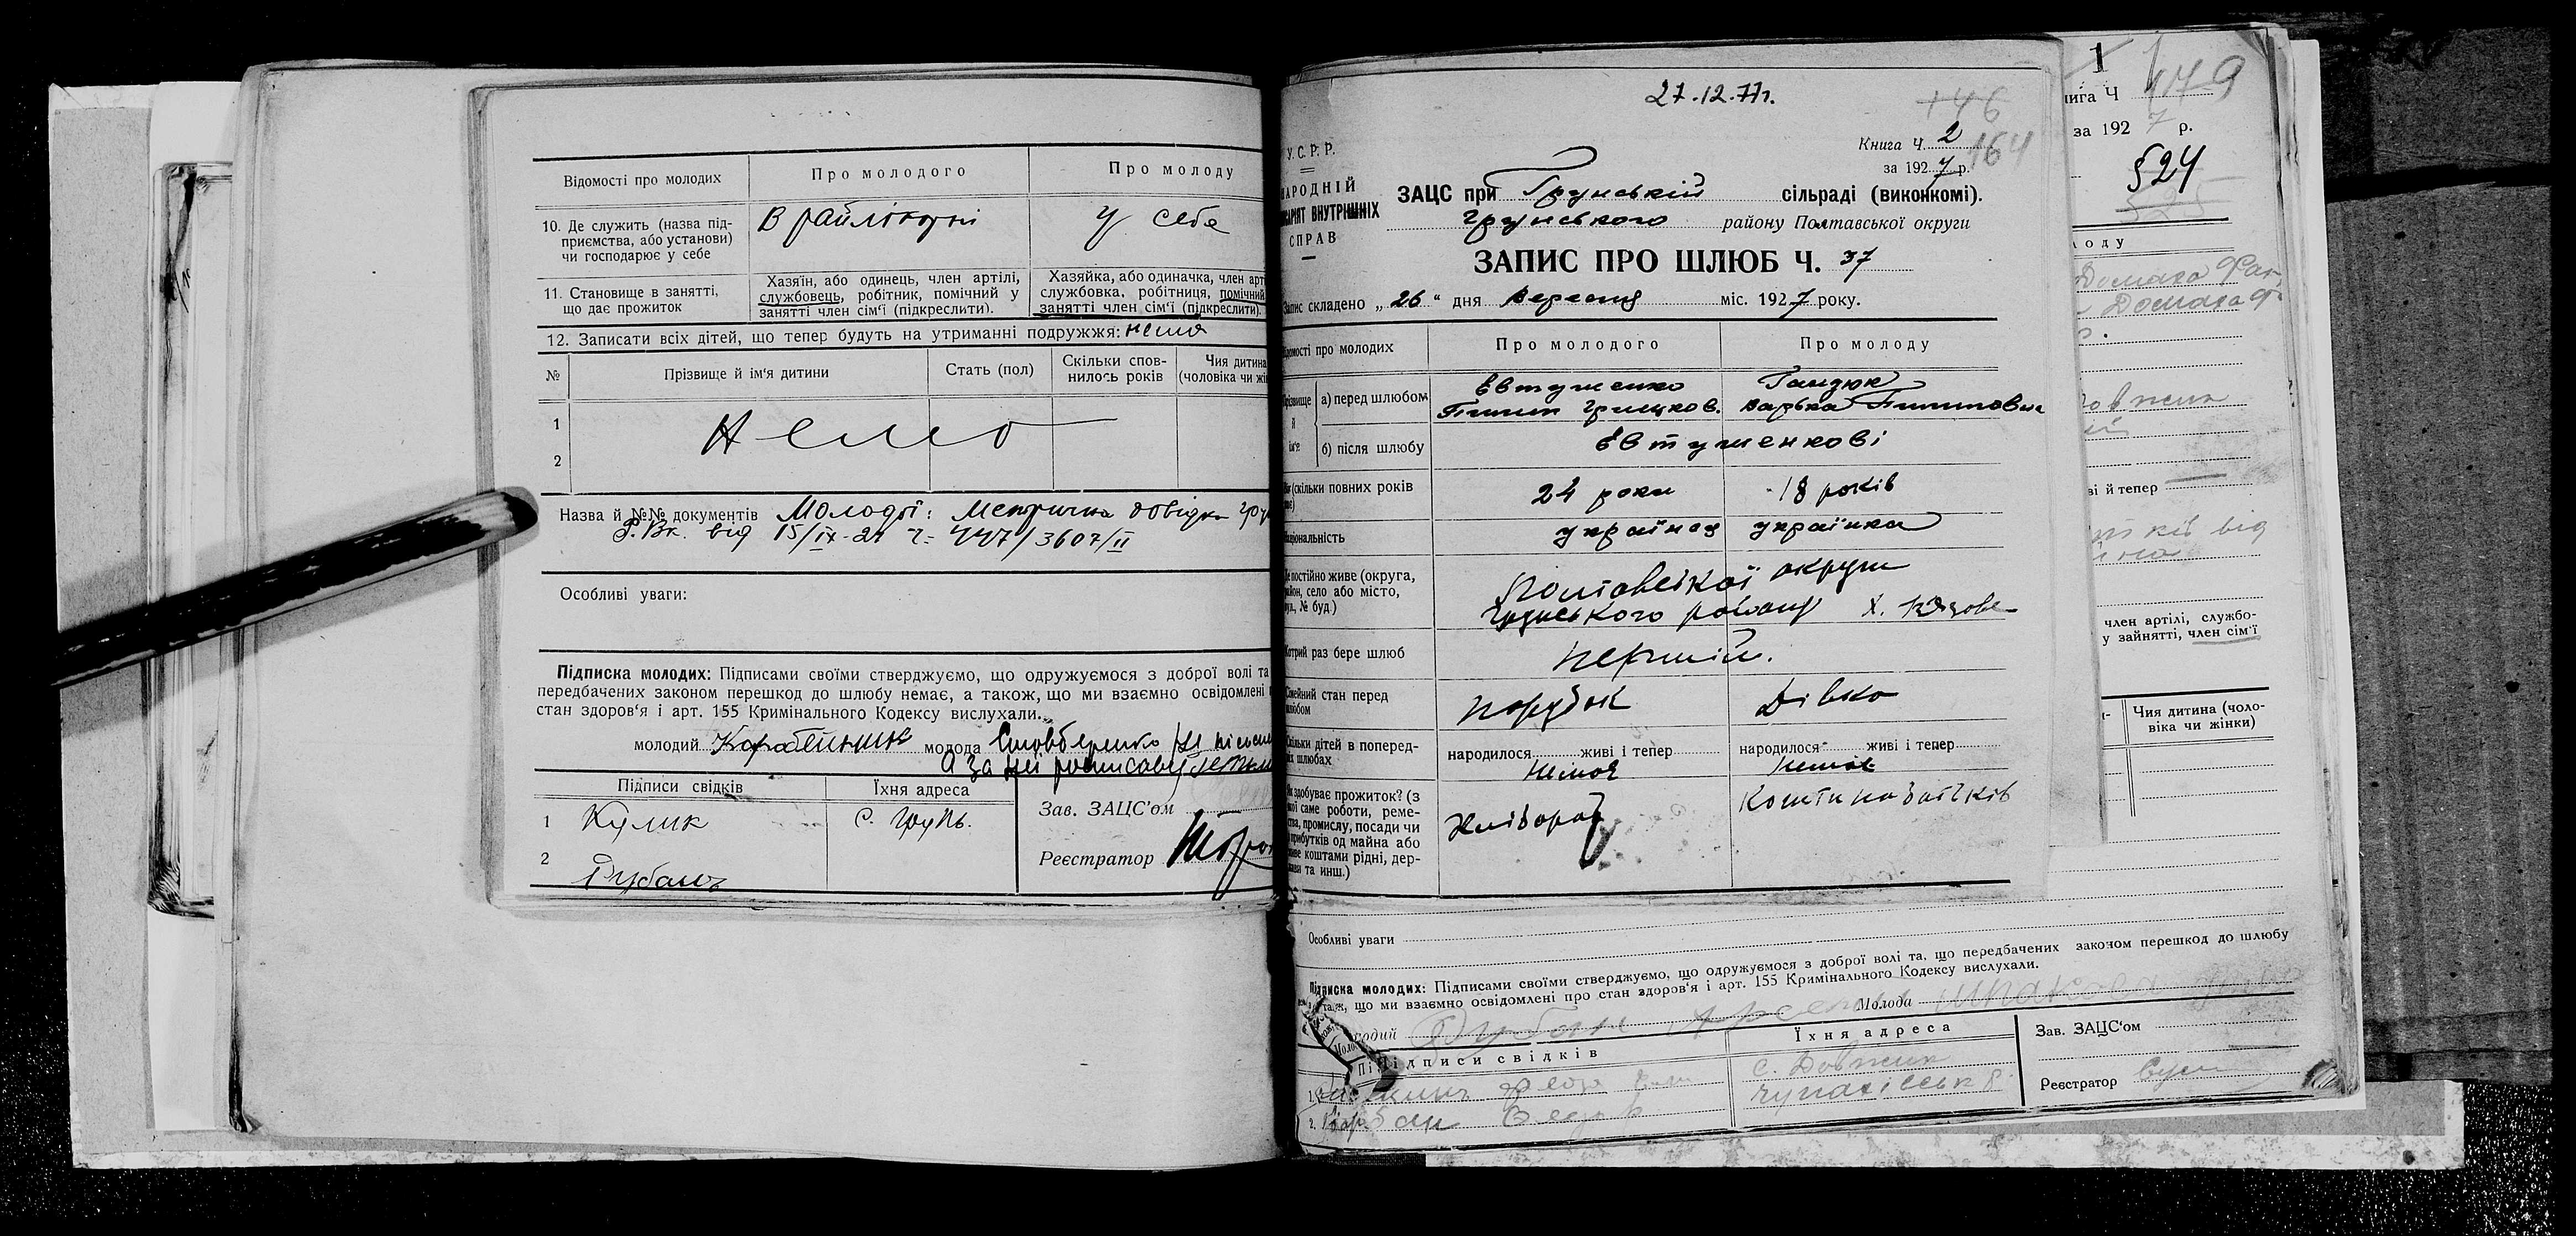 Відомості про молодих
Про молодого
Про молоду
10. Де служить (назва під-
приємства, або установи)
чи господарює у себе
В райлікарні
У себе
11. Становище в занятті,
що дає прожиток
Хазяїн, або одинець, член артілі,
службовець, робітник, помічний у
занятті член сім'ї (підкреслити).
Хазяйка, або одиначка, член арт
службовка, робітниця, помічний
занятті член сім'ї (підкреслити).
12. Записати всіх дітей, що тепер будуть на утриманні подружжя: нема
№
Прізвище й ім'я дитини
Стать (пол)
Скільки спов-
нилось років
Чия дитина
(чоловіка чи жі
1
Нема
2
Назва й №№ документів Молодої: Метрична довідка
Р.Вк. від 15/ІХ-27 ч. 447/3607/ІІ
Особливі уваги:
Підписка молодих: Підписами своїми стверджуємо, що одружуємося з доброї волі та
передбачених законом перешкод до шлюбу немає, а також, що ми взаємно освідомлені
стан здоров'я і арт. 155 Кримінального Кодексу вислухали.
молодий
молода
а за неї росписавс
Підписи свідків
Їхня адреса
Зав. ЗАЦС'ом
1 Кулик
с. Грунь.
Реєстратор
2
Рубан
27.12.77г.
146
164
У.С.Р.Р.
НАРОДНІЙ
ВНУТРІШНІХ
СПРАВ
Книга Ч. 2
за 1927 р.
ЗАЦС при Грунській сільраді (виконкомі).
Грунського району Полтавської округи
ЗАПИС ПРО ШЛЮБ Ч. 37
Запис складено „26" дня вересня міс. 1927 року.
Відомості про молодих
Про молодого
Про молоду
Прізвище
й
ім'я
а) перед шлюбом
Євтушенко
Пилип Грицков.
Гандюк
Варька Пилиповна
б) після шлюбу
Євтушенкові
(скільки повних років
24 роки
18 років
Національність
українец
українка
Де постійно живе (округа,
район, село або місто,
вул., № буд.)
Полтавської округи
Грунського району х.
Котрий раз бере шлюб
перший.
Сімейний стан перед
шлюбом
парубок
Дівка
Скільки дітей в поперед-
ніх шлюбах
народилося живі і тепер
немає
народилося живі і тепер
немає
здобуває прожиток? (з
якої саме роботи, реме-
ства, промислу, посади чи
прибутків од майна або
коштами рідні, дер-
жави та инш.)
Хлібороб
Кошти батьків
1
179
нига Ч
за 1927 р.
§24
лоду
ві й тепер
член артілі, службо-
у зайнятті, член сім'ї
Чия дитина (чоло-
віка чи жінки)
Особливі уваги
Підписка молодих: Підписами своїми стверджуємо, що одружуємося з доброї волі та, що передбачених законом перешкод до шлюбу
також, що ми взаємно освідомлені про стан здоров'я і арт. 155 Кримінального Кодексу вислухали.
Молода
Підписи свідків
Їхня адреса
Зав. ЗАЦС'ом
с. Довжик
Реєстратор
1.
2.